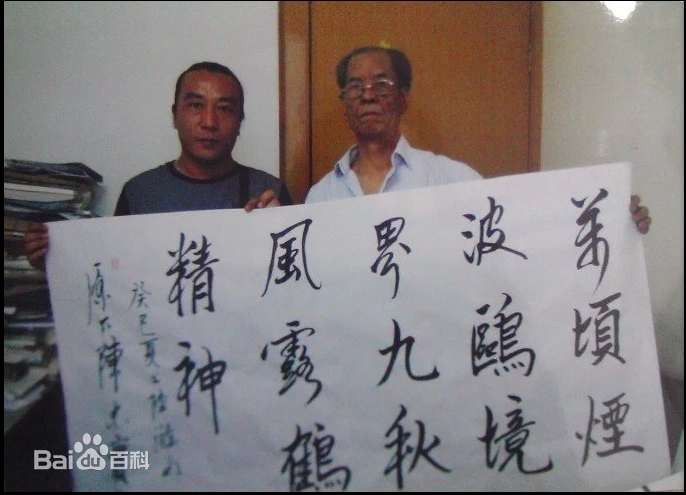 萬頃煙
波鷗境
界九秋
風露鶴
精神
癸巳夏
陳忠
Bai du 百科